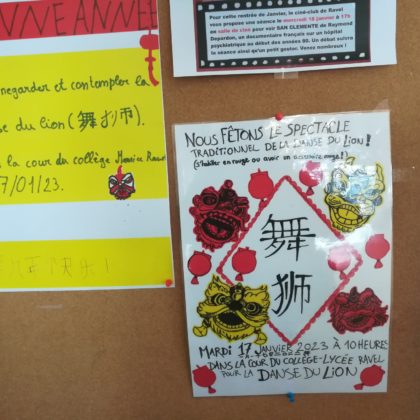 Pour cette rentrée de Janvier, le ciné-club de Ravel
vous propose une séance le mercredi 18 janvier à 17h
en salle de ciné pour voir SAN CLEMENTE de Raymond
Depardon, un documentaire français sur un hôpital
psychiatrique au début des années 80. Un débat suivra
la séance ainsi qu'un petit gouter. Venez nombreux !
ANNÉE
regarder et contempler la
du lion (舞狮).
la cour du collège Maurice
/01/23.
NOUS FÊTONS LE SPECTACLE
TRADITIONNEL DE LA DANSE DU LION !
(s'habiller en rouge ou avoir un accessoire rouge !)
舞
狮
MARDI 17 JANVIER 2023 À 10 HEURES
DANS LA COUR DU COLLÈGE-LYCÉE RAVEL
POUR LA DANSE DU LION